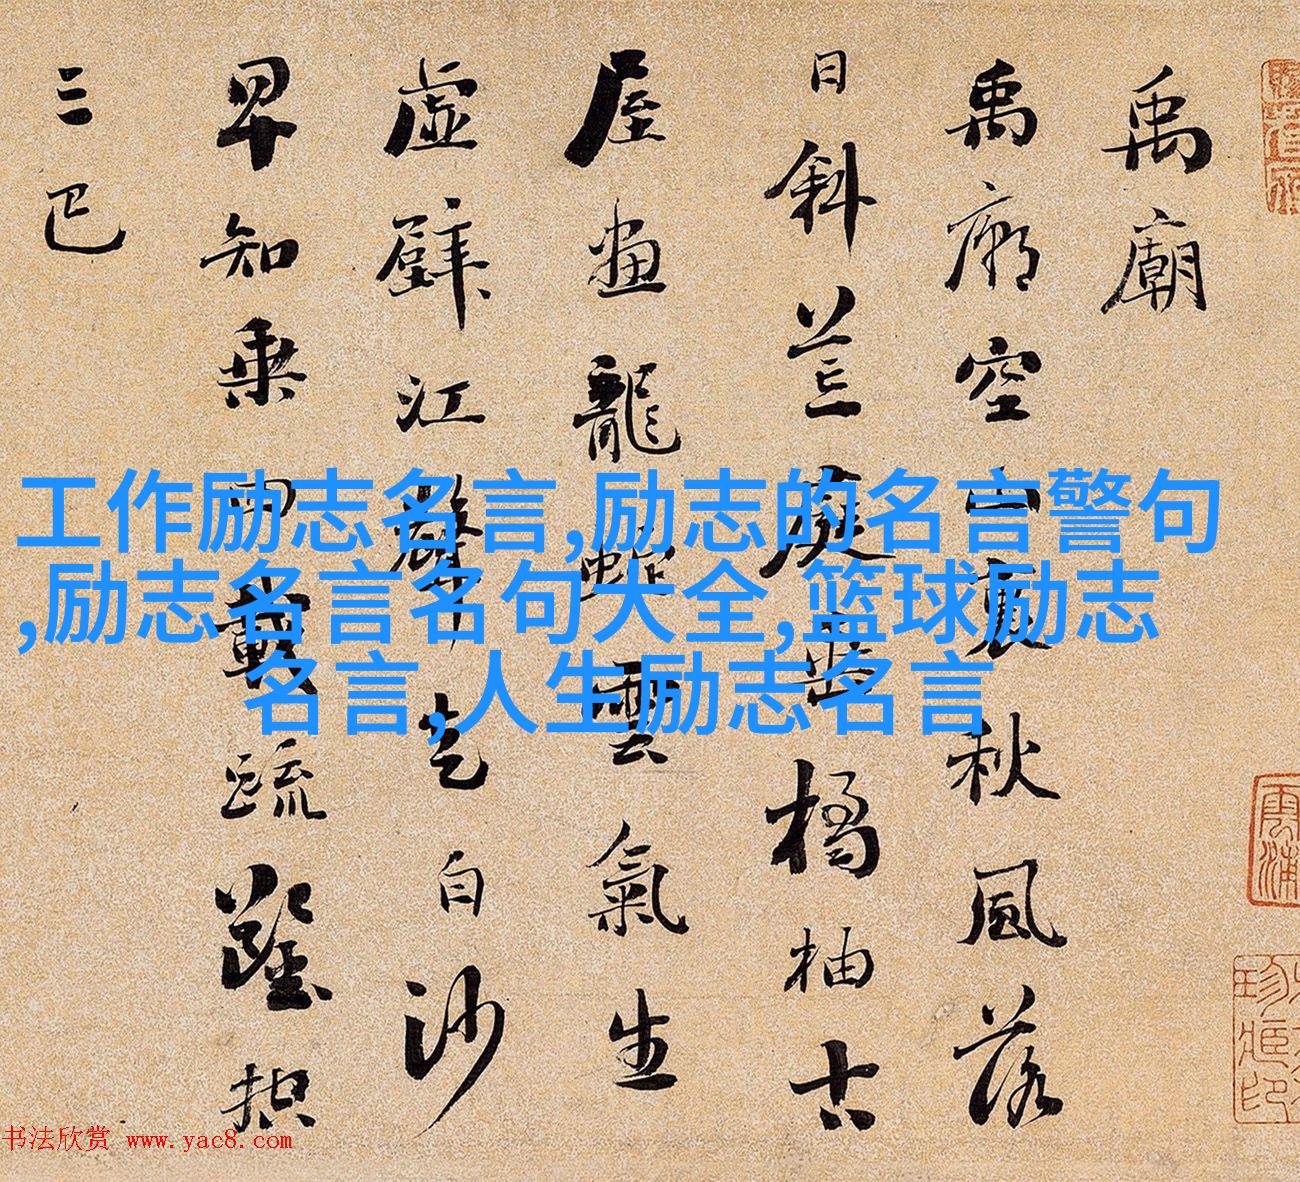 禹廟
禹廟空山裏秋風落
日斜荒庭垂橘柚古
屋畫龍蛇雲氣生
虛壁江聲走白沙
早知乘四載疏鑿控
三巴
工作励志名言,励志的名言警句
,励志名言名句大全,篮球励志
名言,人生励志名言
书法欣赏 www.yac8.com